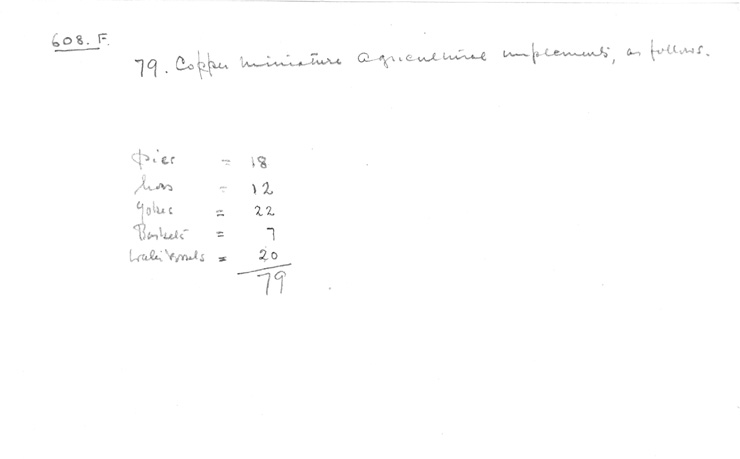 608. F.
79. Copper miniature agricultural implements, as follows.
pics = 18
hoes = 12
Yokes = 22
Baskets = 7
= 20
79